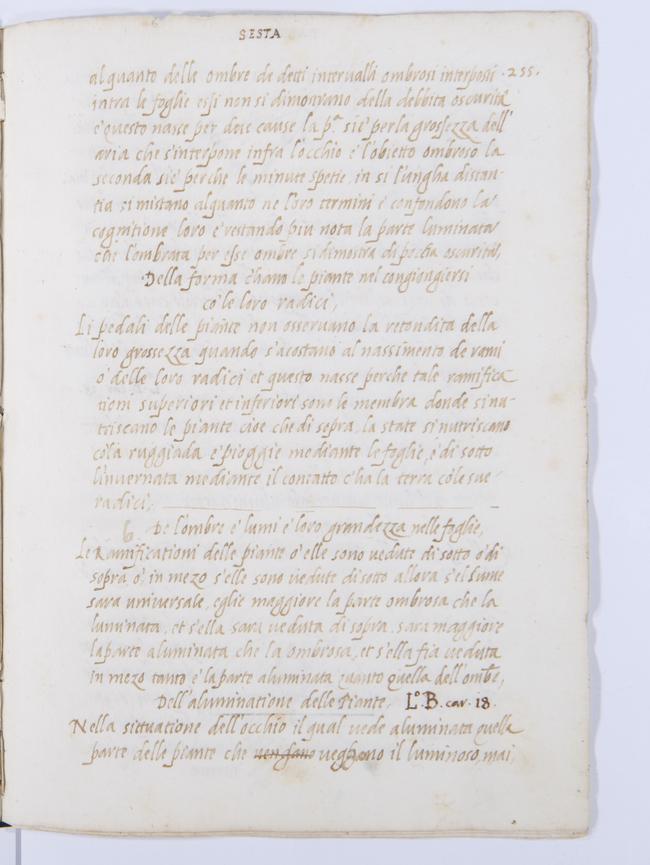 SESTA
alquanto delle ombre de detti intervalli ombrosi interposti .255.
intra le foglie essi non si dimorano della debbita oscurità
e questo nasse per dove cause la p.ª sie per la grossezza dell'
aria che s'interpone infra l'occhio e l'obietto ombroso la
seconda sie perche le minute spetie in si lungha distan-
tia si mistano alquanto ne loro termini e confondono la
cognitione loro e restando piu nota la parte luminata
che l'ombrata per esse ombre si dimostra di pocha oscurità,
Della forma c'hano le piante nel congiongiersi
co'le loro radici,
Li pedali delle piante non osservano la retondita della
loro grossezza quando s'acostano al nassimento de rami
o' delle loro radici et questo nasse perche tale ramifica
tioni superiori et inferiori sono le membra donde si nu-
triscano le piante cioe che di sopra la state si nutriscano
co'la ruggiada e pioggie mediante le foglie, e di sotto
l'invernata mediante il contatto c'ha la terra co'le sue
radici,
6. De l'ombre e' lumi e' loro grandezza nelle foglie,
Le Ramificationi delle piante o' elle sono vedute di sotto o' di
sopra o' in mezo s'elle sono vedute di sotto allora s'el lume
sara universale, eglie maggiore la parte ombrosa che la
luminata, et s'ella sara veduta di sopra, sara maggiore
la parte aluminata che la ombrosa, et s'ella fia veduta
in mezo tanto e' la parte aluminata quanto quella dell'ombre,
Dell'aluminatione delle Piante, L.º B. car. 18.
Nella sittuatione dell'occhio il qual vede aluminata quella
parte delle piante che vengano veggono il luminoso, mai,